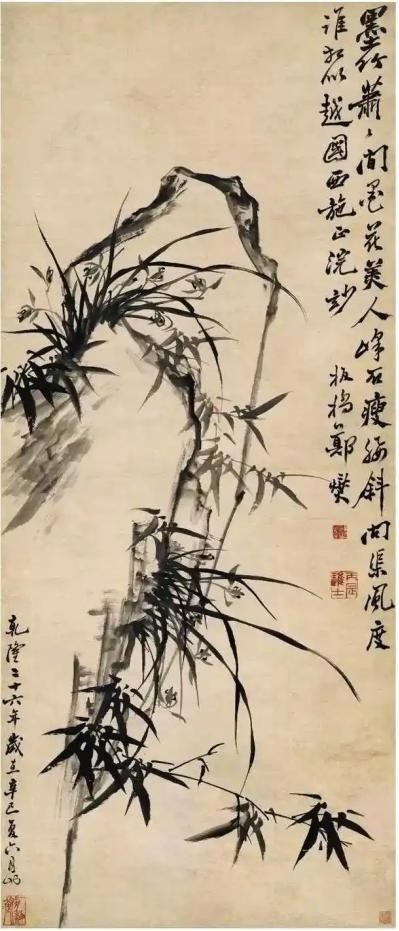 墨竹蕭〻間墨花美人峰石瘦斜問渠風度
誰相似越國西施正浣紗
板橋鄭燮
丙辰進士
乾隆二十六年歲在辛巳夏六月